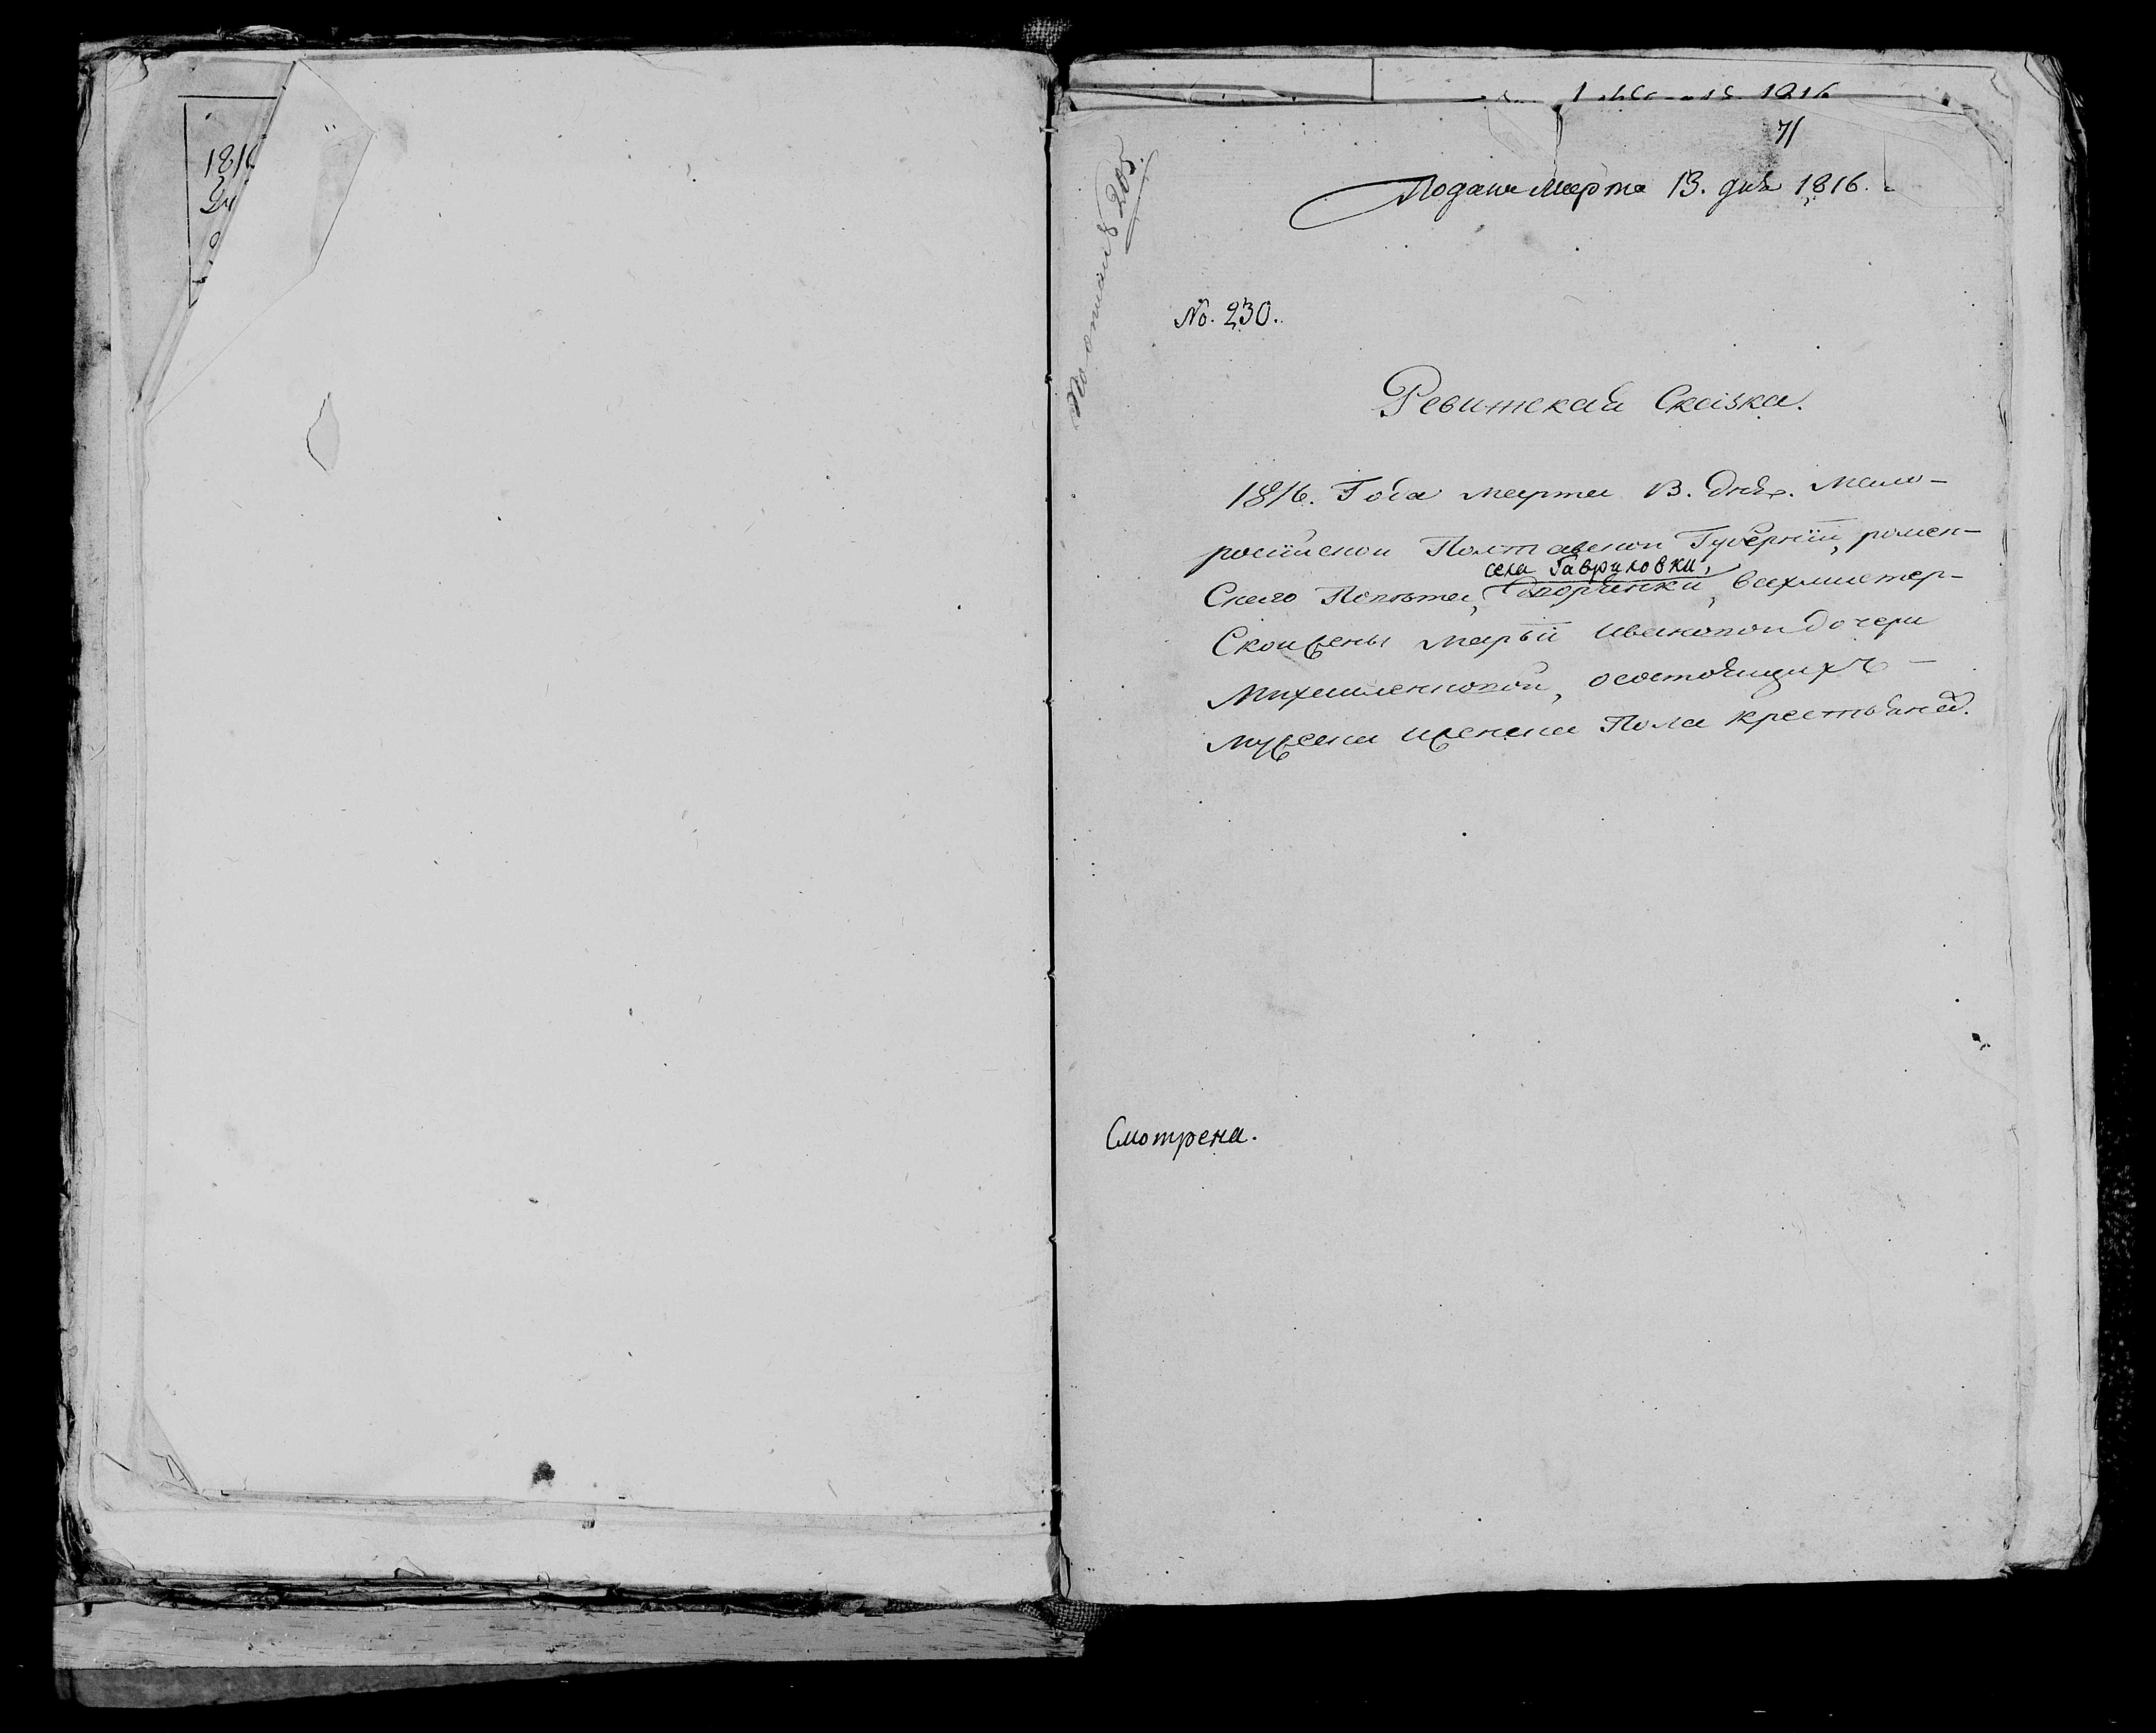 181
71
Подана Марта 13. дня 1816.
По описи 205.
No. 230.
Ревитская Сказка.
1816. Года марта 13. дня. Мало-
росїйской Полтавской Губернїи, ромен-
села Гавриловки,
Скаго Повѣта, вахмистер-
Скойжены Марьи Ивановой дочери
Михаиленковой, осостоящихъ -
мужеска иженска Пола крестьянѣ.
Смотрена.